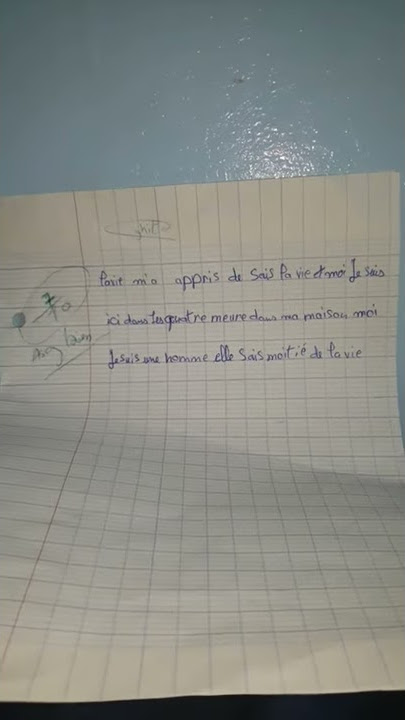 ghetto
Parit m'a appris de sais la vie et moi Je sais
ici dans les quatre meure dans ma maison moi
Je suis une homme elle sais moitié de la vie